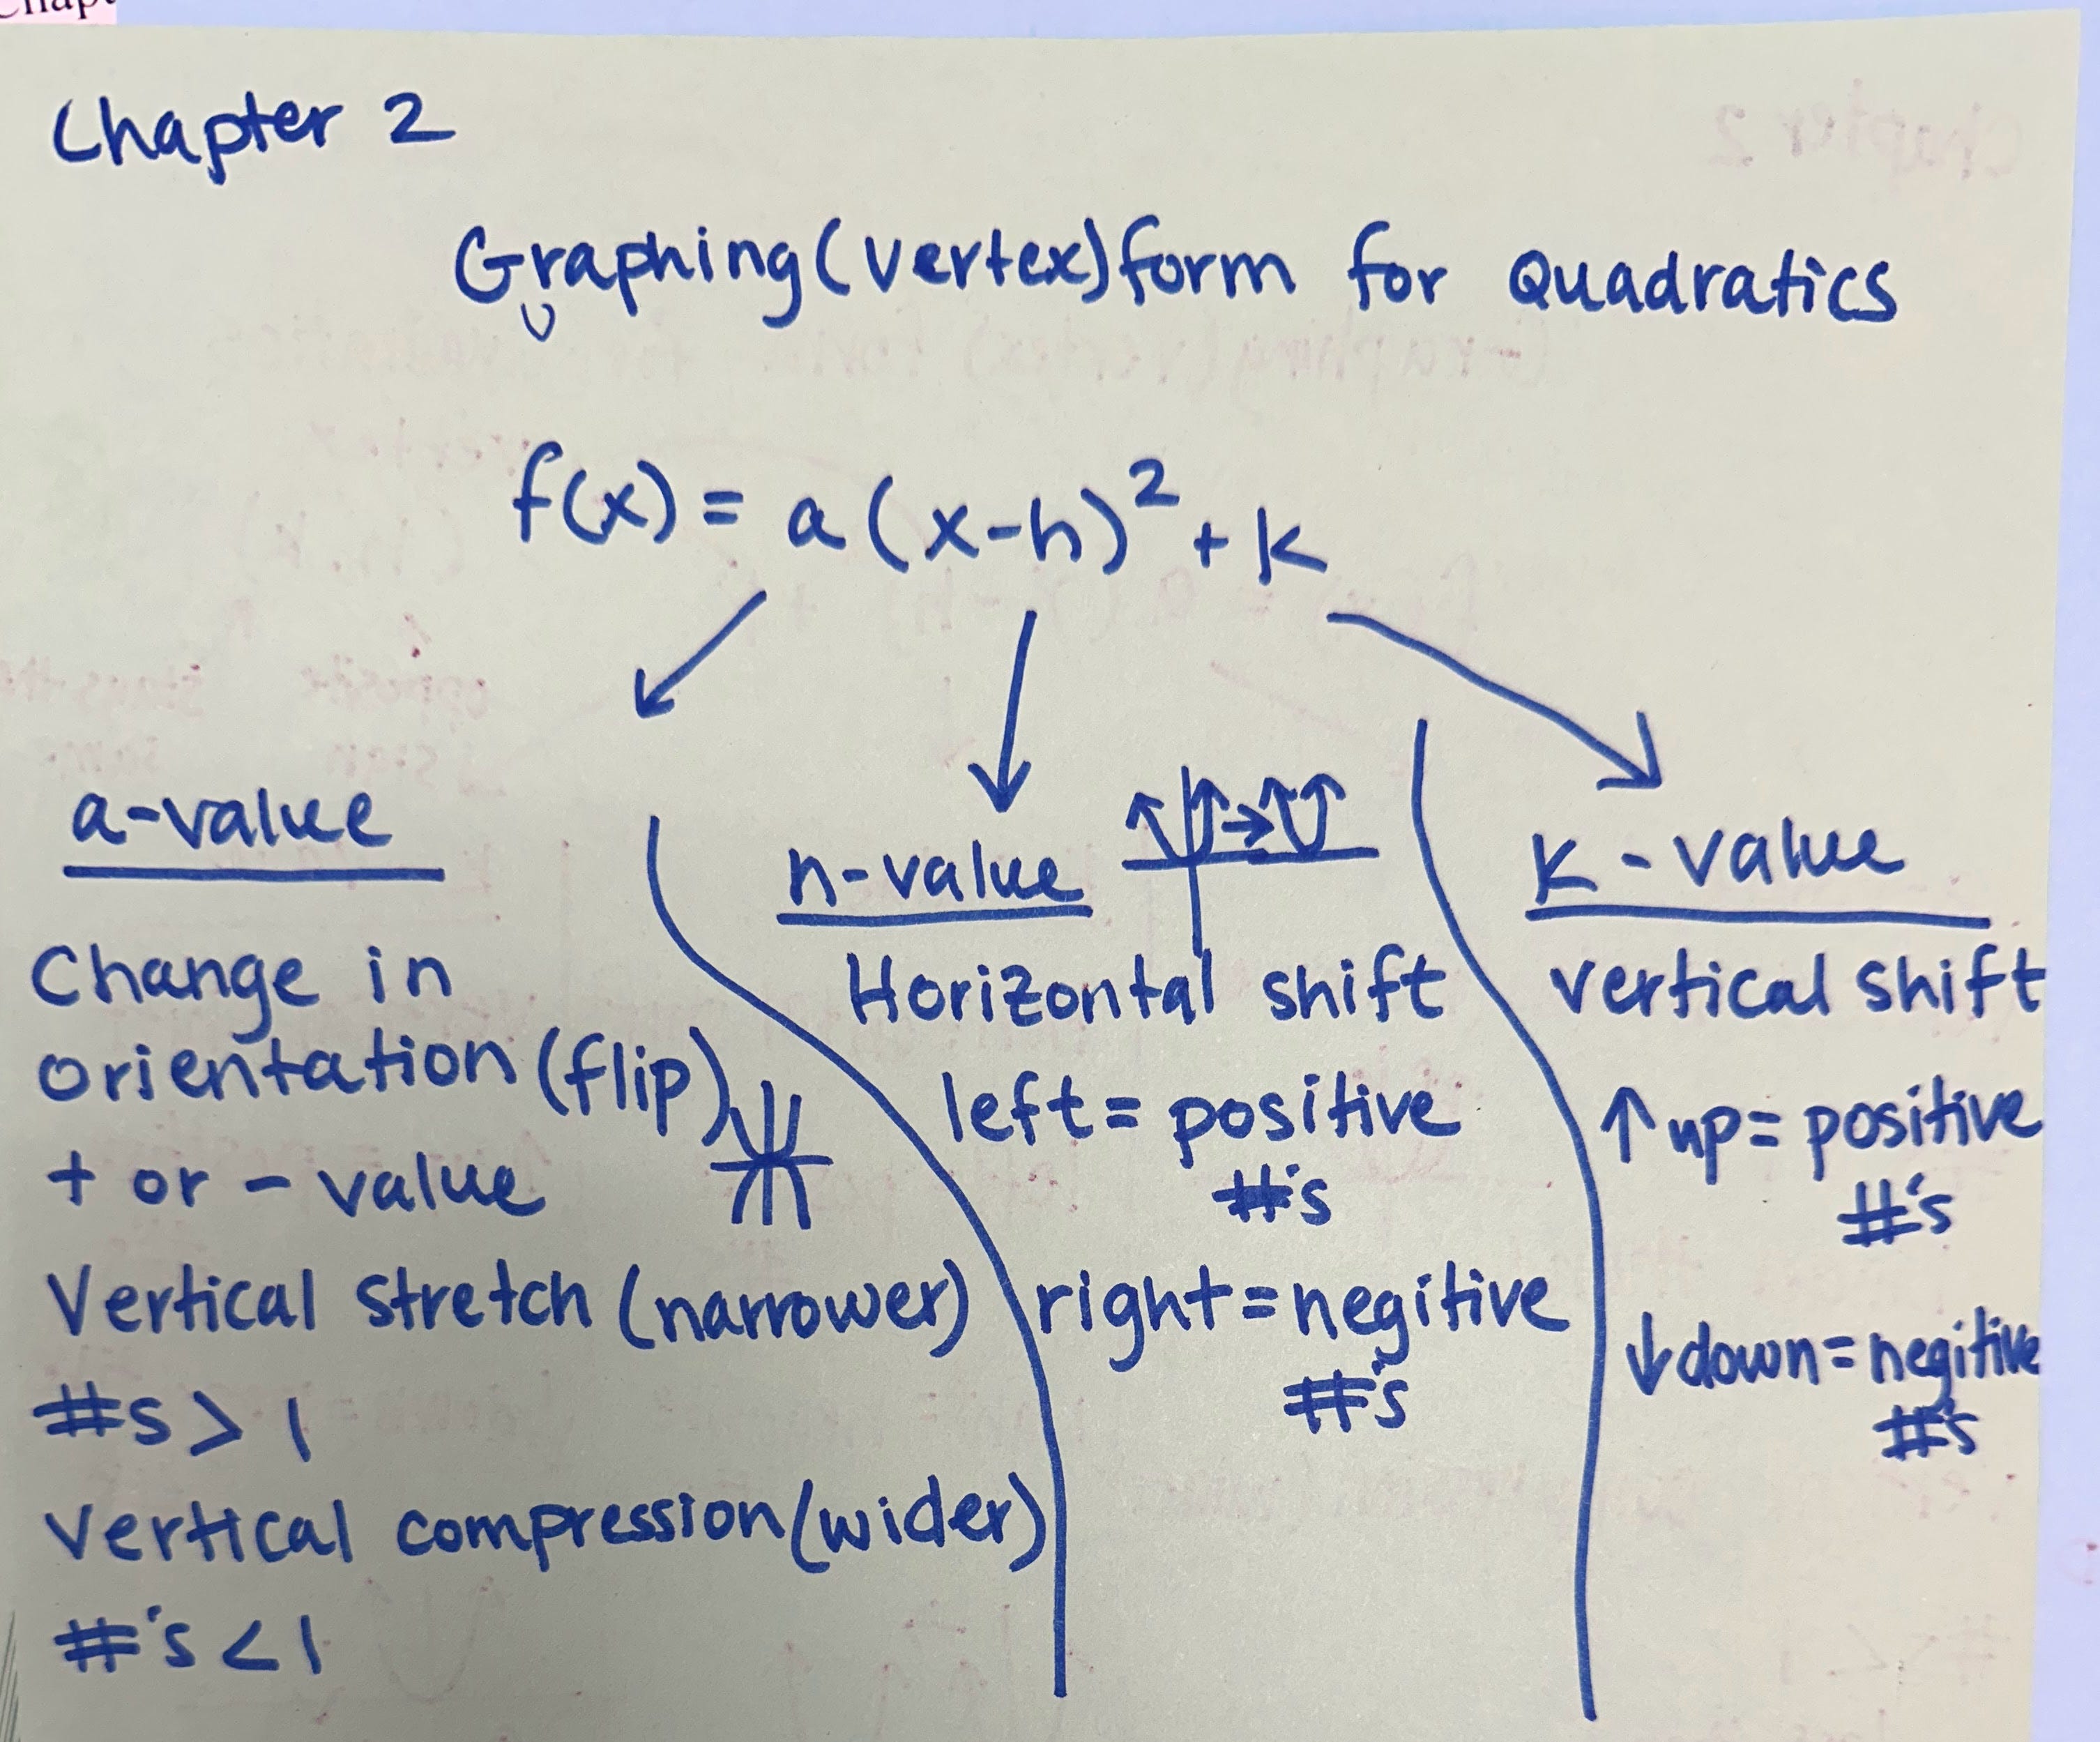 Chapter 2
Graphing (vertex) form for Quadratics
f(x) = a(x-h)² + k
a-value
Change in
orientation (flip)
+ or - value
Vertical stretch (narrower)
#s > 1
Vertical compression (wider)
#'s < 1
h-value
Horizontal shift
left = positive
#'s
right = negitive
#'s
K - value
vertical shift
↑ up = positive
#'s
↓ down = negitive
#'s